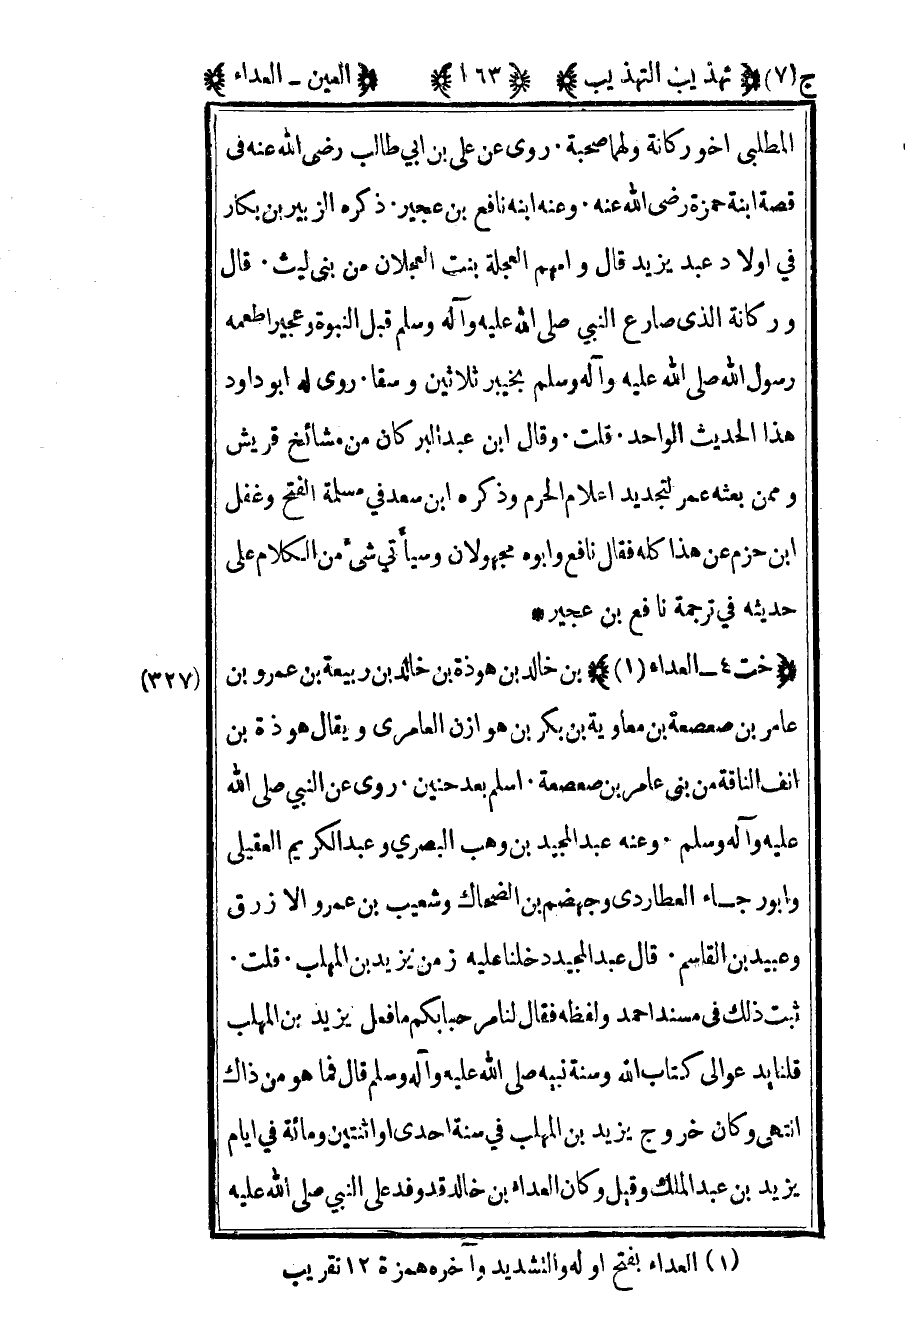 ج(٧) ﴿ تهذيب التهذيب ﴾ ﴿ ١٦٣ ﴾ ﴿ العين ـ العداء ﴾
المطلبى اخو ركانة ولهما صحبة ٠ روى عن على بن ابي طالب رضى الله عنه فى
قصة ابنة حمزة رضى الله عنه ٠ وعنه ابنه نافع بن عجير ٠ ذكره الزبير بن بكار
في اولاد عبد يزيد قال وامهم العجلة بنت العجلان من بنى ليث ٠ قال
وركانة الذى صارع النبي صلى الله عليه وآله وسلم قبل النبوة وعجير اطعمه
رسول الله صلى الله عليه وآله وسلم بخيبر ثلاثين وسقا ٠ روى له ابو داود
هذا الحديث الواحد ٠ قلت ٠ وقال ابن عبد البر كان من مشائخ قريش
وممن بعثه عمر لتجديد اعلام الحرم وذكره ابن سعد في مسلمة الفتح وغفل
ابن حزم عن هذا كله فقال نافع وابوه مجهولان وسيأتي شئ من الكلام على
حديثه في ترجمة نافع بن عجير *
﴿ خت ٤ ـ العداء (١) ﴾ بن خالد بن هوذة بن خالد بن ربيعة بن عمرو بن (٣٢٧)
عامر بن صعصعة بن معاوية بن بكر بن هوازن العامرى ويقال هوذة بن
انف الناقة من بنى عامر بن صعصعة ٠ اسلم بعد حنين ٠ روى عن النبي صلى الله
عليه وآله وسلم ٠ وعنه عبد المجيد بن وهب البصري وعبد الكريم العقيلى
وابو رجاء العطاردى وجهضم بن الضحاك وشعيب بن عمرو الازرق
وعبيد بن القاسم ٠ قال عبد المجيد دخلنا عليه زمن يزيد بن المهلب ٠ قلت ٠
ثبت ذلك فى مسند احمد ولفظه فقال لنا مرحبا بكم ما فعل يزيد بن المهلب
قلنا يدعو الى كتاب الله وسنة نبيه صلى الله عليه وآله وسلم قال فما هو من ذاك
انتهى وكان خروج يزيد بن المهلب في سنة احدى او اثنتين ومائة في ايام
يزيد بن عبد الملك وقيل وكان العداء بن خالد قد وفد على النبي صلى الله عليه
(١) العداء بفتح اوله والتشديد وآخره همزة ١٢ تقريب